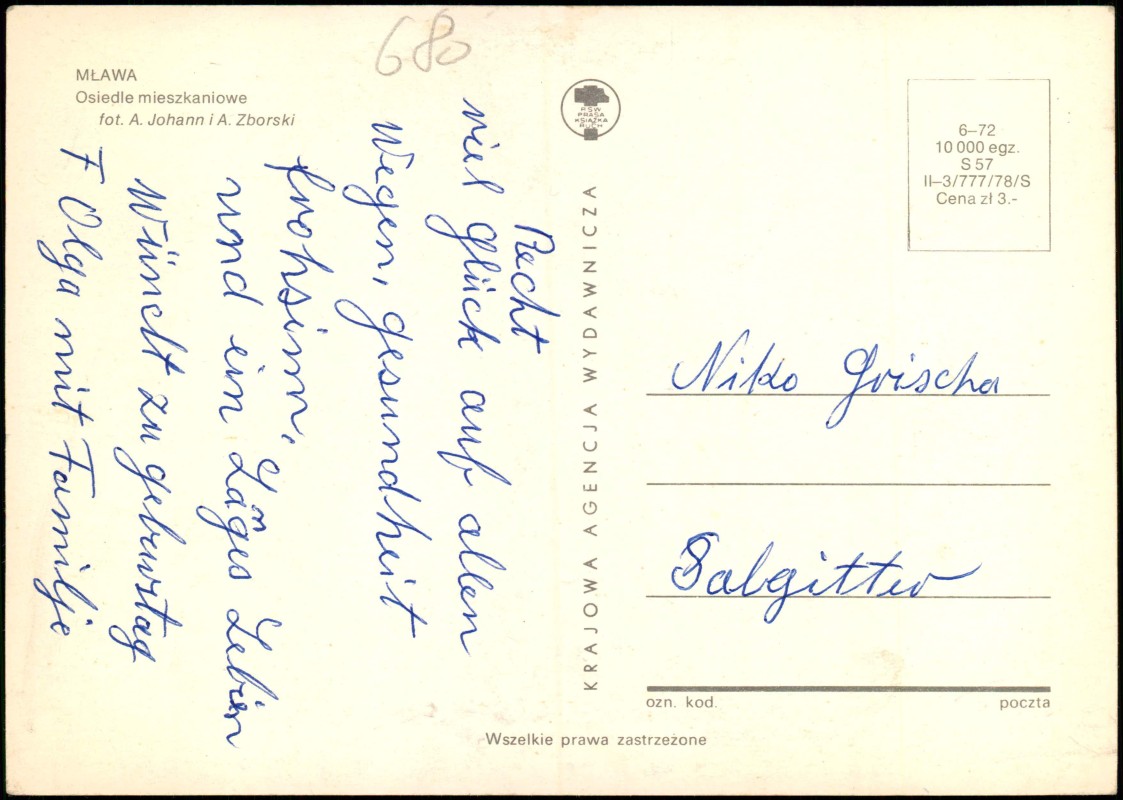 MŁAWA
Osiedle mieszkaniowe
fot. A. Johann i A. Zborski
680
Recht
viel glück auf allen
Wegen, gesundheit
frohsimn,
und ein Läges Leben
n
Wünclt zu geburstag
F Olga mit Familje
RSW
PRASA
KSIĄŻKA
RUCH
KRAJOWA AGENCJA WYDAWNICZA
6–72
10 000 egz.
S 57
II–3/777/78/S
Cena zł 3.-
Niko Grischa
Salgitter
ozn. kod. poczta
Wszelkie prawa zastrzeżone